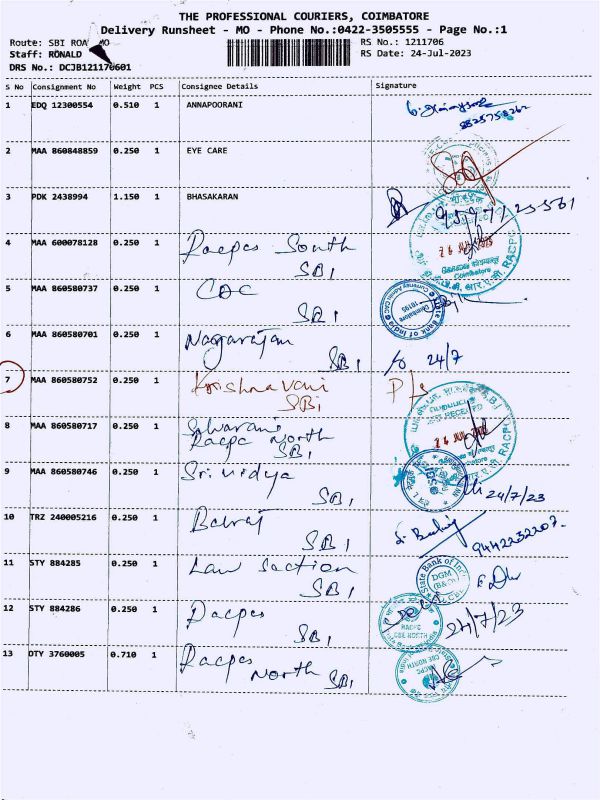 THE PROFESSIONAL COURIERS, COIMBATORE
Delivery Runsheet - MO - Phone No.:0422-3505555 - Page No.:1
Route: SBI ROA MO
RS No.: 1211706
Staff: RONALD
RS Date: 24-Jul-2023
DRS No.: DCJB121170601
S No Consignment No Weight PCS Consignee Details Signature
1 EDQ 12300554 0.510 1 ANNAPOORANI
2 MAA 860848859 0.250 1 EYE CARE
3 PDK 2438994 1.150 1 BHASAKARAN
4 MAA 600078128 0.250 1 Racpcs South
SBI
5 MAA 860580737 0.250 1 CDC
SBI
6 MAA 860580701 0.250 1 Nagarajan
SBI 24/7
7 MAA 860580752 0.250 1 Krishnavani
SBI
8 MAA 860580717 0.250 1 Selvarani
Racpc North
SBI
9 MAA 860580746 0.250 1 Sri vidya
SBI 24/7/23
10 TRZ 240005216 0.250 1 Balraj
SBI 9442232207
11 STY 884285 0.250 1 Law Section
SBI
State Bank of India
DGM
(B&O)
12 STY 884286 0.250 1 Racpcs
SBI 24/7/23
RACPC
CBE NORTH
13 OTY 3760005 0.710 1 Racpcs
North
SBI
RACPC
CBE NORTH